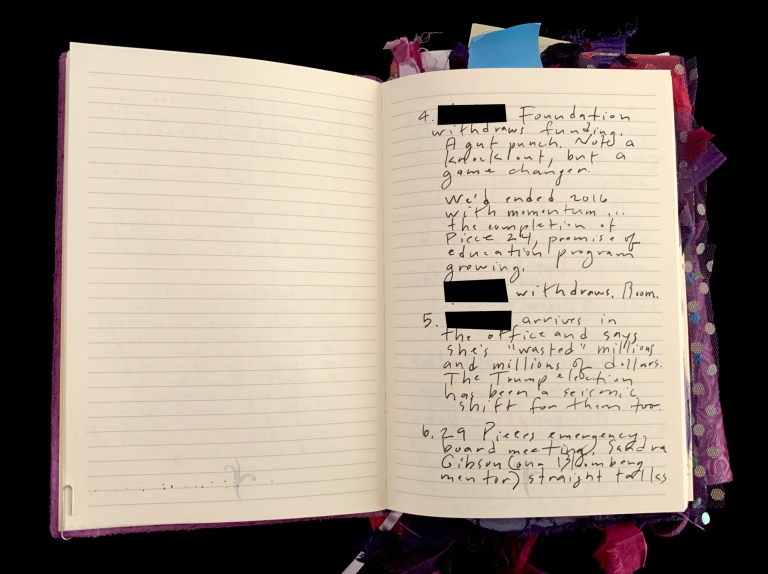 4. Foundation
withdraws funding.
A gut punch. Not a
knock out, but a
game changer.
We'd ended 2016
with momentum...
the completion of
Piece 24, promise of
education program
growing.
withdraws. Boom.
5. arrives in
the office and says
she's "wasted" millions
and millions of dollars.
The Trump election
has been a seismic
shift for them too.
6. 29 Pieces emergency
board meeting. Sandra
Gibson (ona
mentor) straight talks